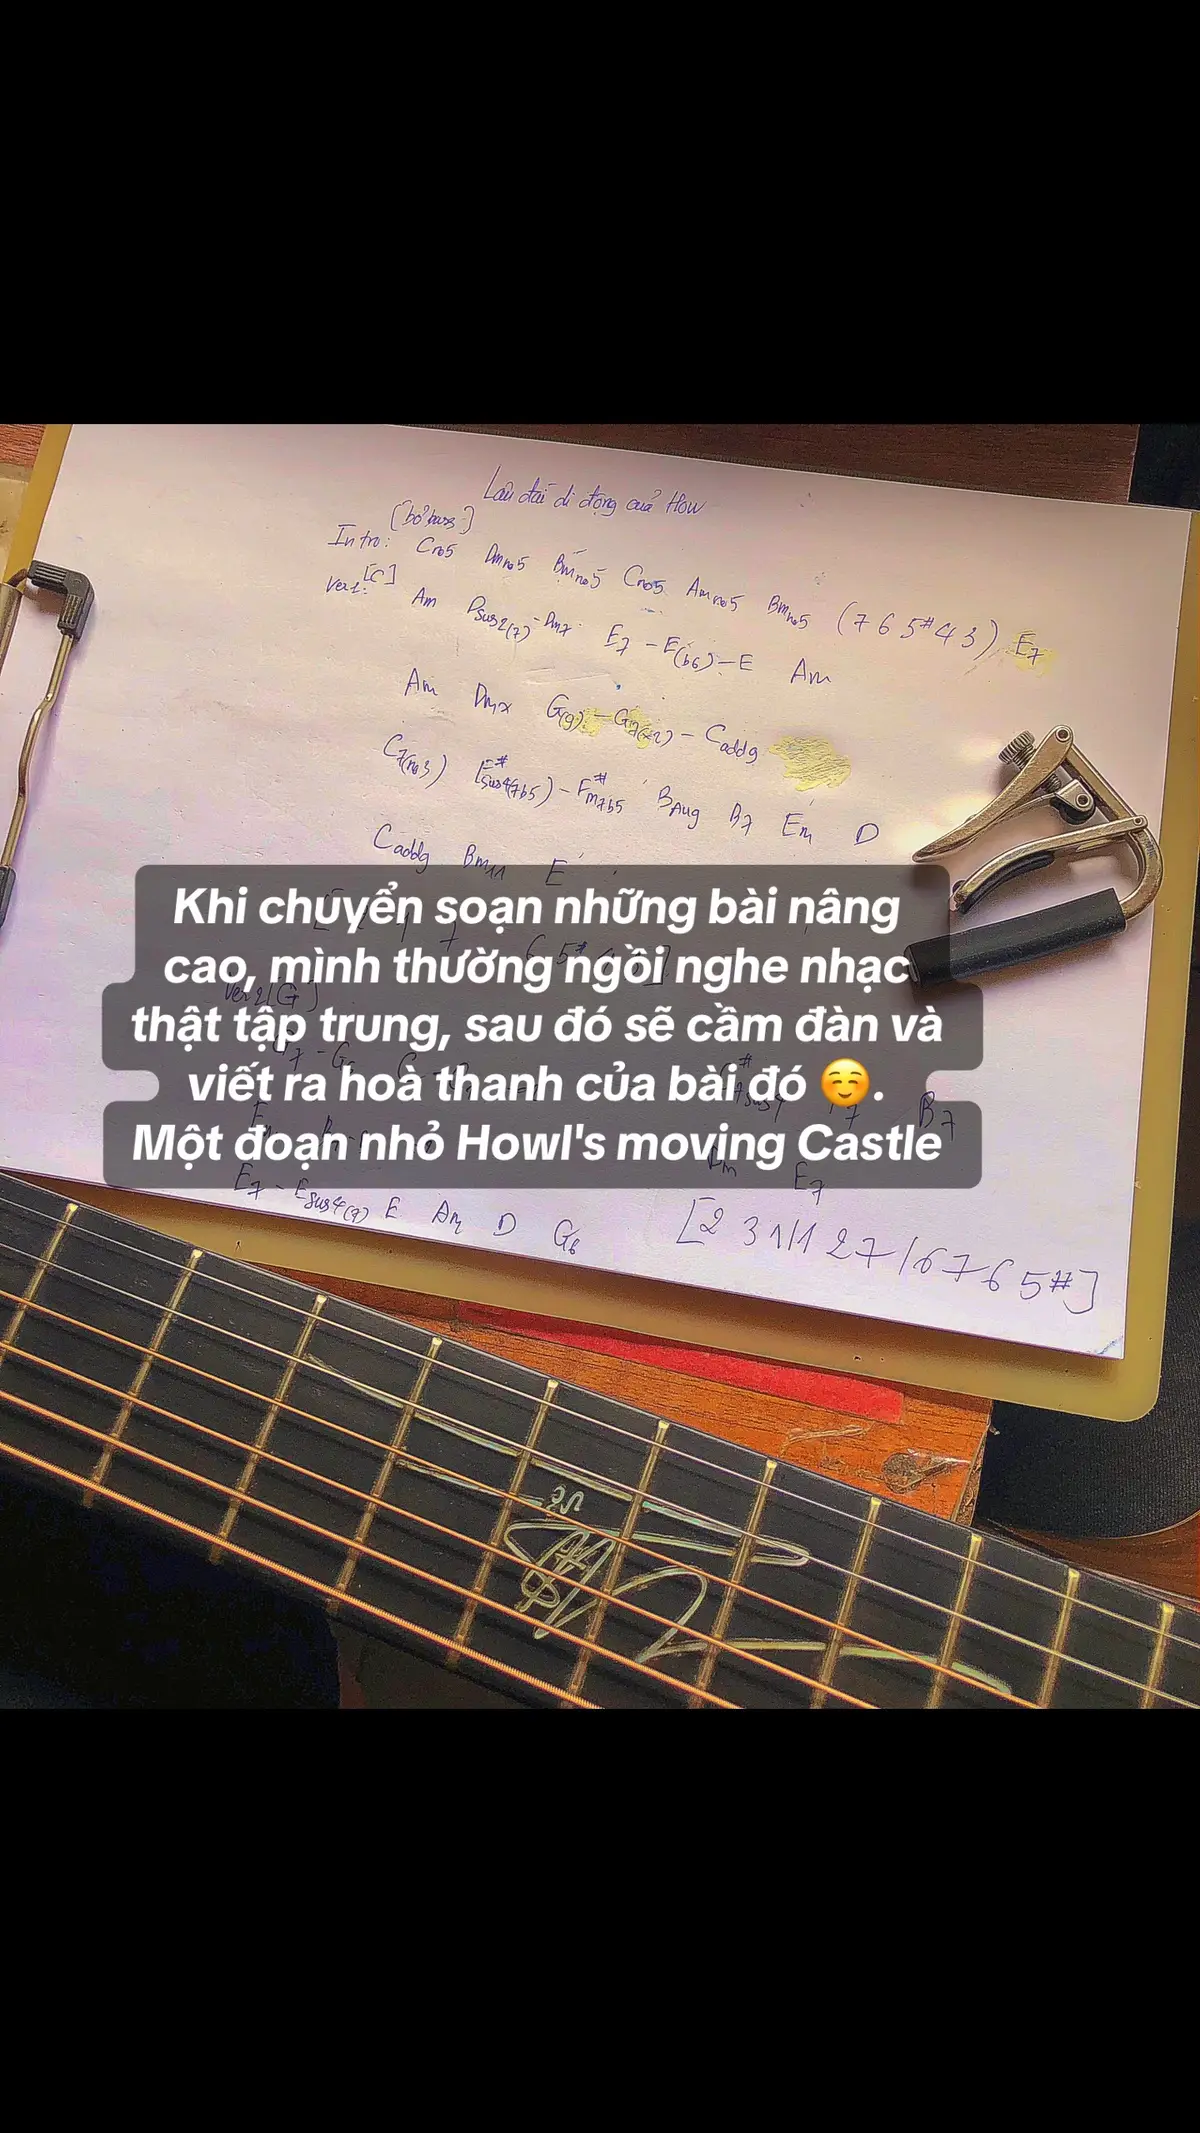 Lâu đài di động của How
[bỏ bass]
Intro: Cno5 Dmno5 Bmno5 Cno5 Amno5 Bmno5 (7 6 5# 4 3) E7
Ver1: [C] Am Dsus2(7) - Dm7 E7 - E(b6) - E Am
Am Dm G(9) - G7 - Cadd9
C7(no3) F#sus4(7b5) - F#m7b5 BAug B7 Em D
Cadd9 Bm11 E
Khi chuyển soạn những bài nâng
cao, mình thường ngồi nghe nhạc
thật tập trung, sau đó sẽ cầm đàn và
viết ra hoà thanh của bài đó ☺️.
Một đoạn nhỏ Howl's moving Castle
ver2 [G]
B7
Dm E7
E7 - Esus4(9) E Am D G6 [2 3 1/1 2 7/6 7 6 5#]